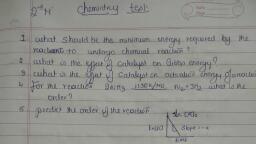 Chemistry test
1 what should be the minimum energy required by the reactant to undergo chemical reaction?
2 what is the effect of catalyst on Gibbs energy?
3 what is the effect of catalyst on activation energy of
4 for the reaction what is the order?
5 predict the order of the reaction
Slope = -k
time